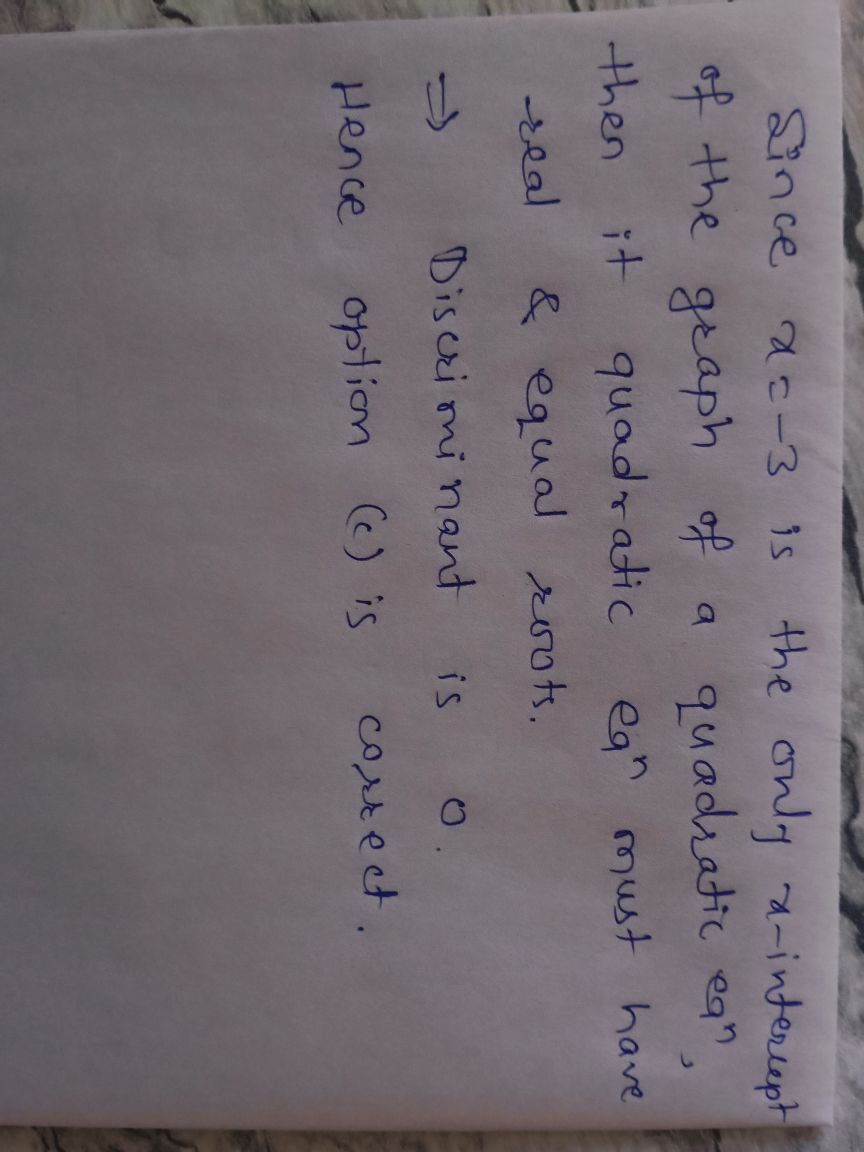 Since x=-3 is the only x-intercept
of the graph of a quadratic eqⁿ,
then it quadratic eqⁿ must have
real & equal roots.
⇒ Discriminant is 0.
Hence option (c) is correct.